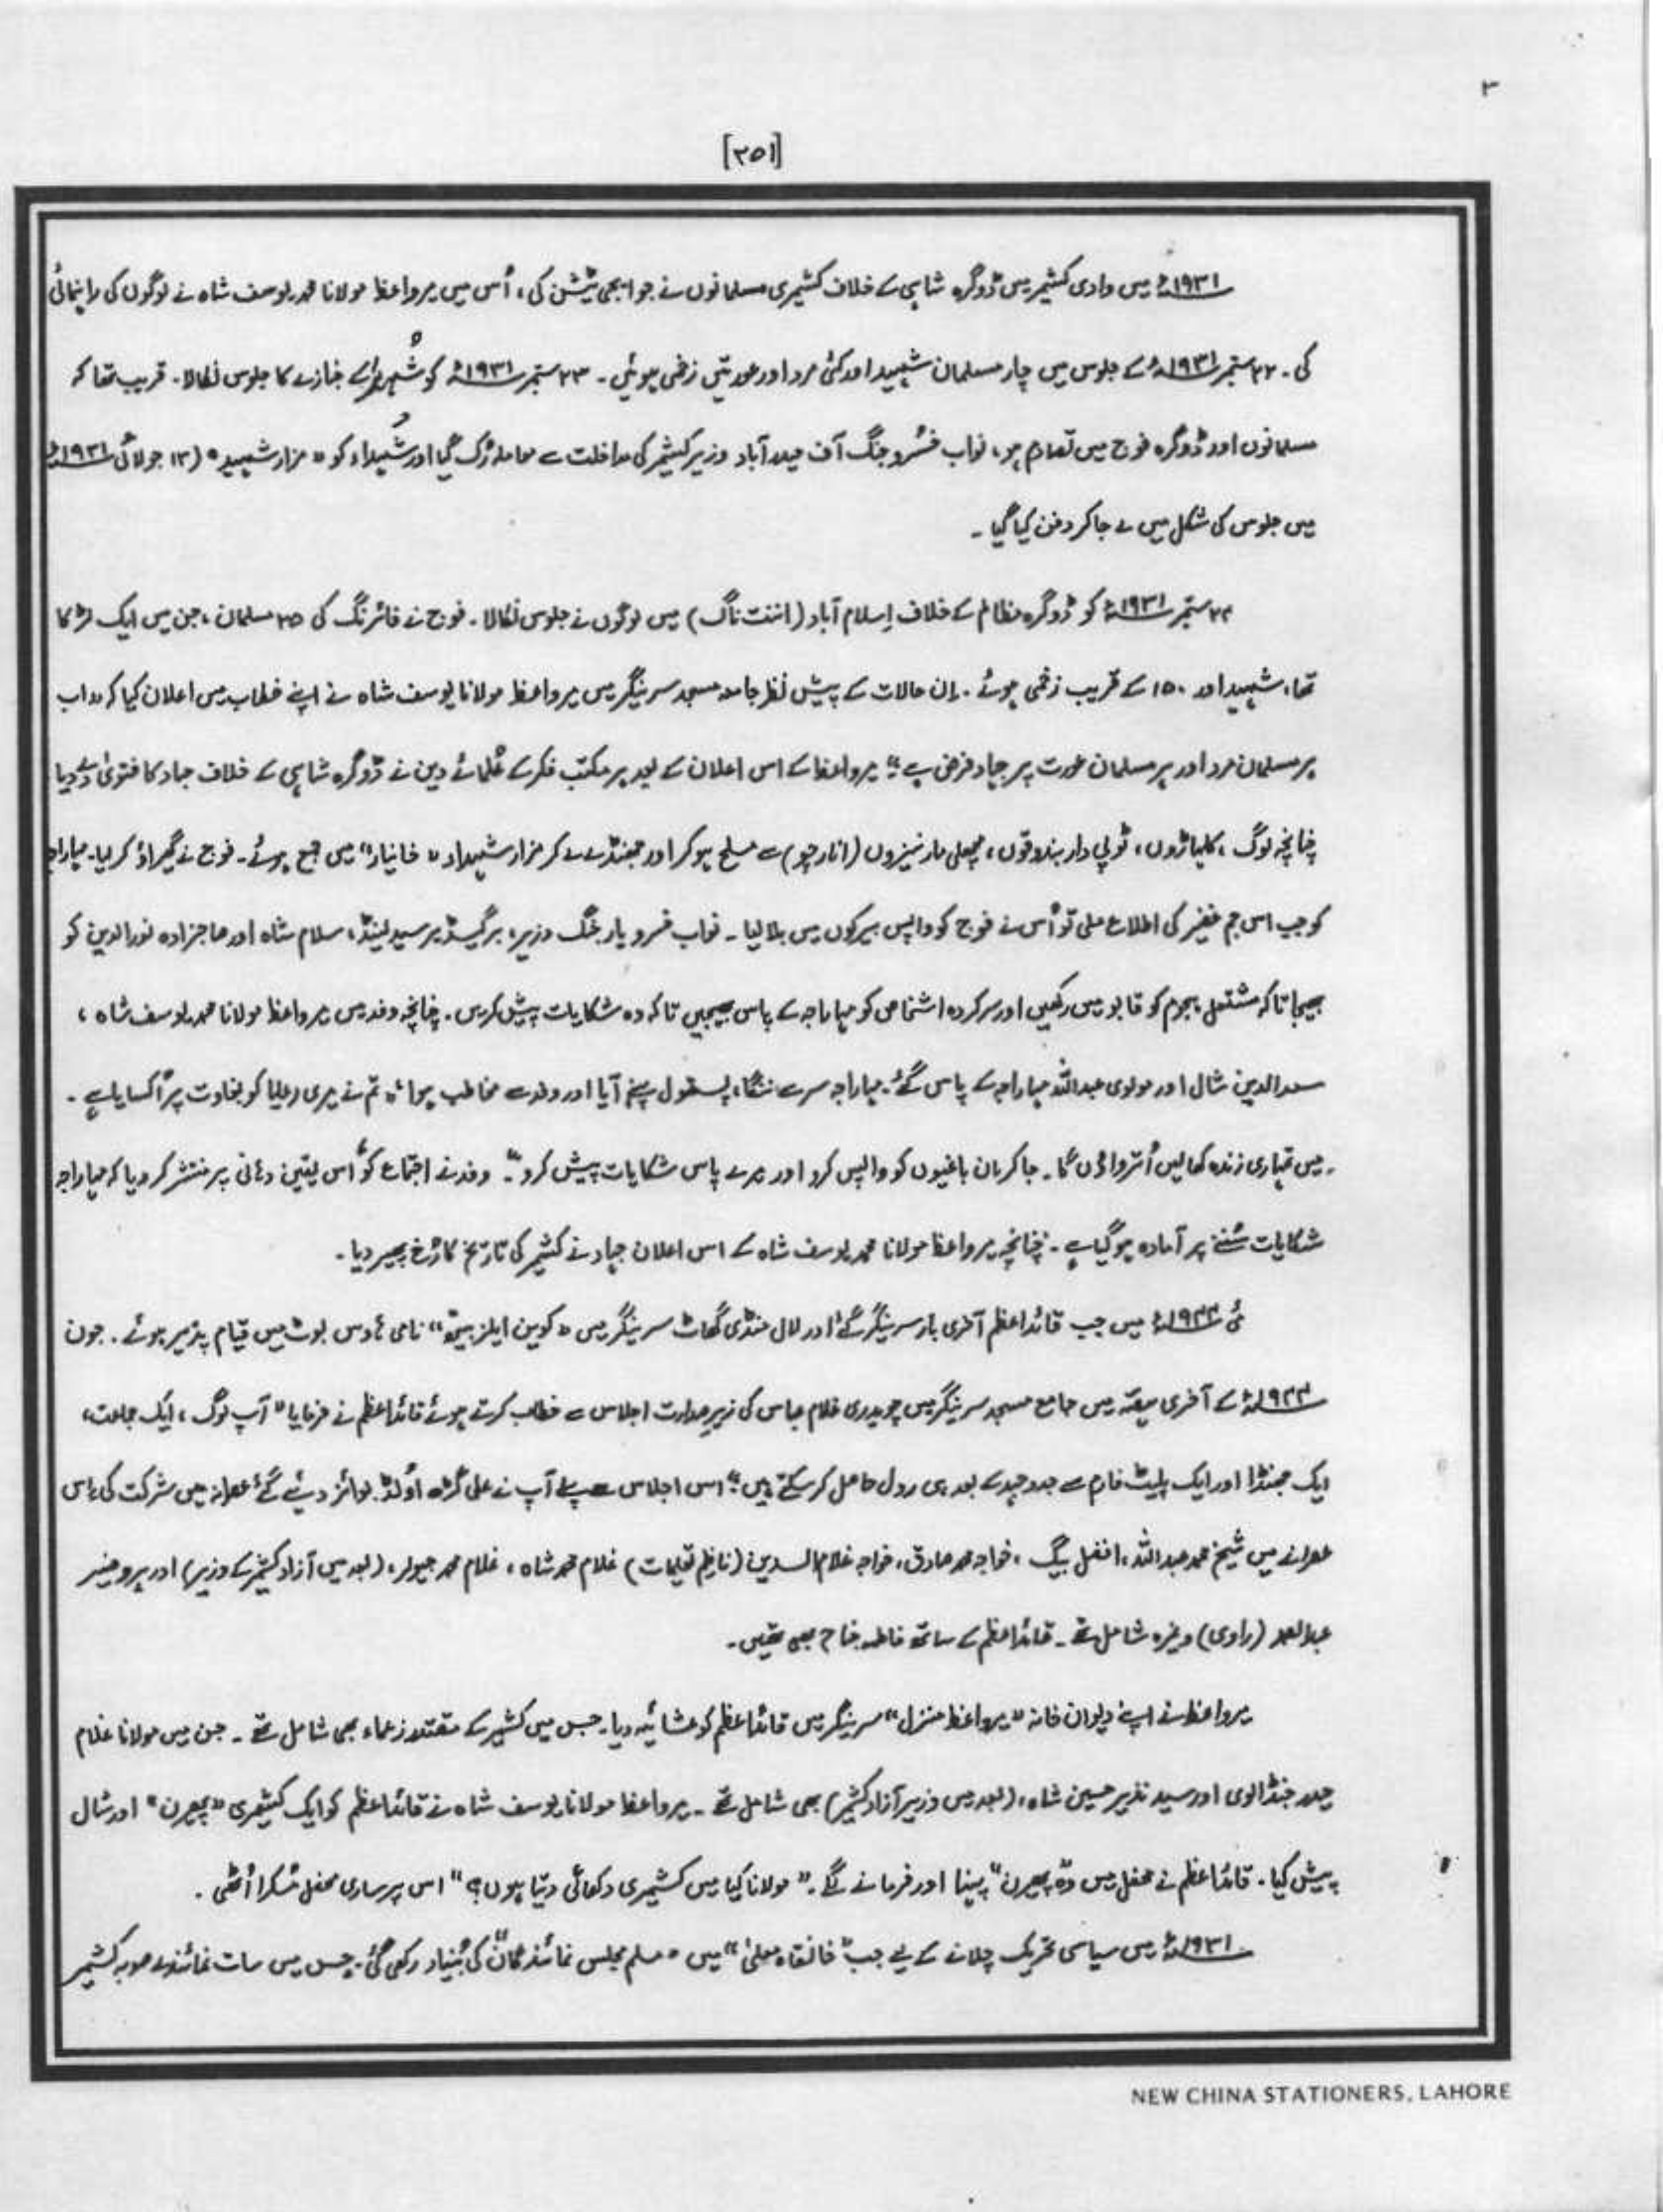 ۳
[۲۵۱]
۱۹۳۱ء میں وادی کشمیر میں ڈوگرہ شاہی کے خلاف کشمیری مسلمانوں نے جو ایجی ٹیشن کی، اُس میں میرواعظ مولانا محمد یوسف شاہ نے لوگوں کی راہنمائی
کی۔ ۲۲ ستمبر ۱۹۳۱ء کے جلوس میں چار مسلمان شہید اور کئی مرد اور عورتیں زخمی ہوئیں۔ ۲۳ ستمبر ۱۹۳۱ء کو شہداء کے جنازے کا جلوس نکالا۔ قریب تھا کہ
مسلمانوں اور ڈوگرہ فوج میں تصادم ہو، نواب خسرو جنگ آف حیدر آباد وزیر کشمیر کی مداخلت سے معاملہ رُک گیا اور شُہداء کو "مزار شہید" (۱۳ جولائی ۱۹۳۱ء
میں جلوس کی شکل میں لے جا کر دفن کیا گیا۔
۲۴ ستمبر ۱۹۳۱ء کو ڈوگرہ مظالم کے خلاف اِسلام آباد (اننت ناگ) میں لوگوں نے جلوس نکالا۔ فوج نے فائرنگ کی ۲۵ مسلمان، جن میں ایک لڑکا
تھا، شہید اور ۱۵۰ کے قریب زخمی ہوئے۔ اِن حالات کے پیش نظر جامع مسجد سرینگر میں میرواعظ مولانا یوسف شاہ نے اپنے خطاب میں اعلان کیا کہ "اب
ہر مسلمان مرد اور ہر مسلمان عورت پر جہاد فرض ہے"۔ میرواعظ کے اس اعلان کے بعد ہر مکتب فکر کے عُلمائے دین نے ڈوگرہ شاہی کے خلاف جہاد کا فتویٰ دے دیا
چنانچہ لوگ، کلہاڑوں، ٹوپی دار بندوقوں، مچھلی مار نیزوں (انارچو) سے مسلح ہو کر اور جھنڈے لے کر مزار شہداء "خانیار" میں جمع ہوئے۔ فوج نے گھیراؤ کر لیا۔ مہاراجہ
کو جب اس جم غفیر کی اطلاع ملی تو اُس نے فوج کو واپس بیرکوں میں بلا لیا۔ نواب خسرو یار جنگ وزیر، برگیڈیر سیدلینڈ، سلام شاہ اور صاحبزادہ نور الدین کو
بھیجا تاکہ مشتعل ہجوم کو قابو میں رکھیں اور سرکردہ اشخاص کو مہاراجہ کے پاس بھیجیں تاکہ وہ شکایات پیش کریں۔ چنانچہ وفد میں میرواعظ مولانا محمد یوسف شاہ،
سعد الدین شال اور مولوی عبداللہ مہاراجہ کے پاس گئے۔ مہاراجہ سر سے ننگا، پستول پہنے آیا اور وفد سے مخاطب ہوا، "تم نے میری رعایا کو بغاوت پر اُکسایا ہے۔
میں تمہاری زندہ کھالیں اُترواؤں گا۔ جا کر ان باغیوں کو واپس کرو اور میرے پاس شکایات پیش کرو"۔ وفد نے اجتماع کو اُس یقین دہانی پر منتشر کر دیا کہ مہاراجہ
شکایات سُننے پر آمادہ ہو گیا ہے۔ چنانچہ میرواعظ مولانا محمد یوسف شاہ کے اس اعلان جہاد نے کشمیر کی تاریخ کا رُخ پھیر دیا۔
مئی ۱۹۴۴ء میں جب قائداعظم آخری بار سرینگر گئے اور لال منڈی گھاٹ سرینگر میں "کوین ایلزبیتھ" نامی ہاوس بوٹ میں قیام پذیر ہوئے۔ جون
۱۹۴۴ء کے آخری ہفتہ میں جامع مسجد سرینگر میں چوہدری غلام عباس کی زیر صدارت اجلاس سے خطاب کرتے ہوئے قائداعظم نے فرمایا "آپ لوگ، ایک جماعت،
ایک جھنڈا اور ایک پلیٹ فارم سے جدوجہد کے بعد ہی رول حاصل کر سکتے ہیں"۔ اس اجلاس سے پہلے آپ نے علی گڑھ اُولڈ بوائز دیئے گئے عصرانہ میں شرکت کی۔ اِس
عصرانے میں شیخ محمد عبداللہ، افضل بیگ، خواجہ محمد صادق، خواجہ غلام السدین (ناظم تعلیمات) غلام محمد شاہ، غلام محمد جیولر، (بعد میں آزاد کشمیر کے وزیر) اور پروفیسر
عبدالصمد (راوی) وغیرہ شامل تھے۔ قائداعظم کے ساتھ فاطمہ جناح بھی تھیں۔
میرواعظ نے اپنے دیوان خانہ "میرواعظ منزل" سرینگر میں قائداعظم کو عشائیہ دیا۔ جس میں کشمیر کے مقتدر زعماء بھی شامل تھے۔ جن میں مولانا غلام
حیدر جنڈالوی اور سید نذیر حسین شاہ، (بعد میں وزیر آزاد کشمیر) بھی شامل تھے۔ میرواعظ مولانا یوسف شاہ نے قائداعظم کو ایک کشمیری "پھیرن" اور شال
پیش کیا۔ قائداعظم نے محفل میں وہ "پھیرن" پہنا اور فرمانے لگے۔ "مولانا کیا میں کشمیری دکھائی دیتا ہوں؟" اس پر ساری محفل مُسکرا اُٹھی۔
۱۹۳۱ء میں سیاسی تحریک چلانے کے لیے جب "خانقاہ معلیٰ" میں "مسلم مجلس نمائندگان" کی بُنیاد رکھی گئی۔ جس میں سات نمائندے صوبہ کشمیر
NEW CHINA STATIONERS, LAHORE